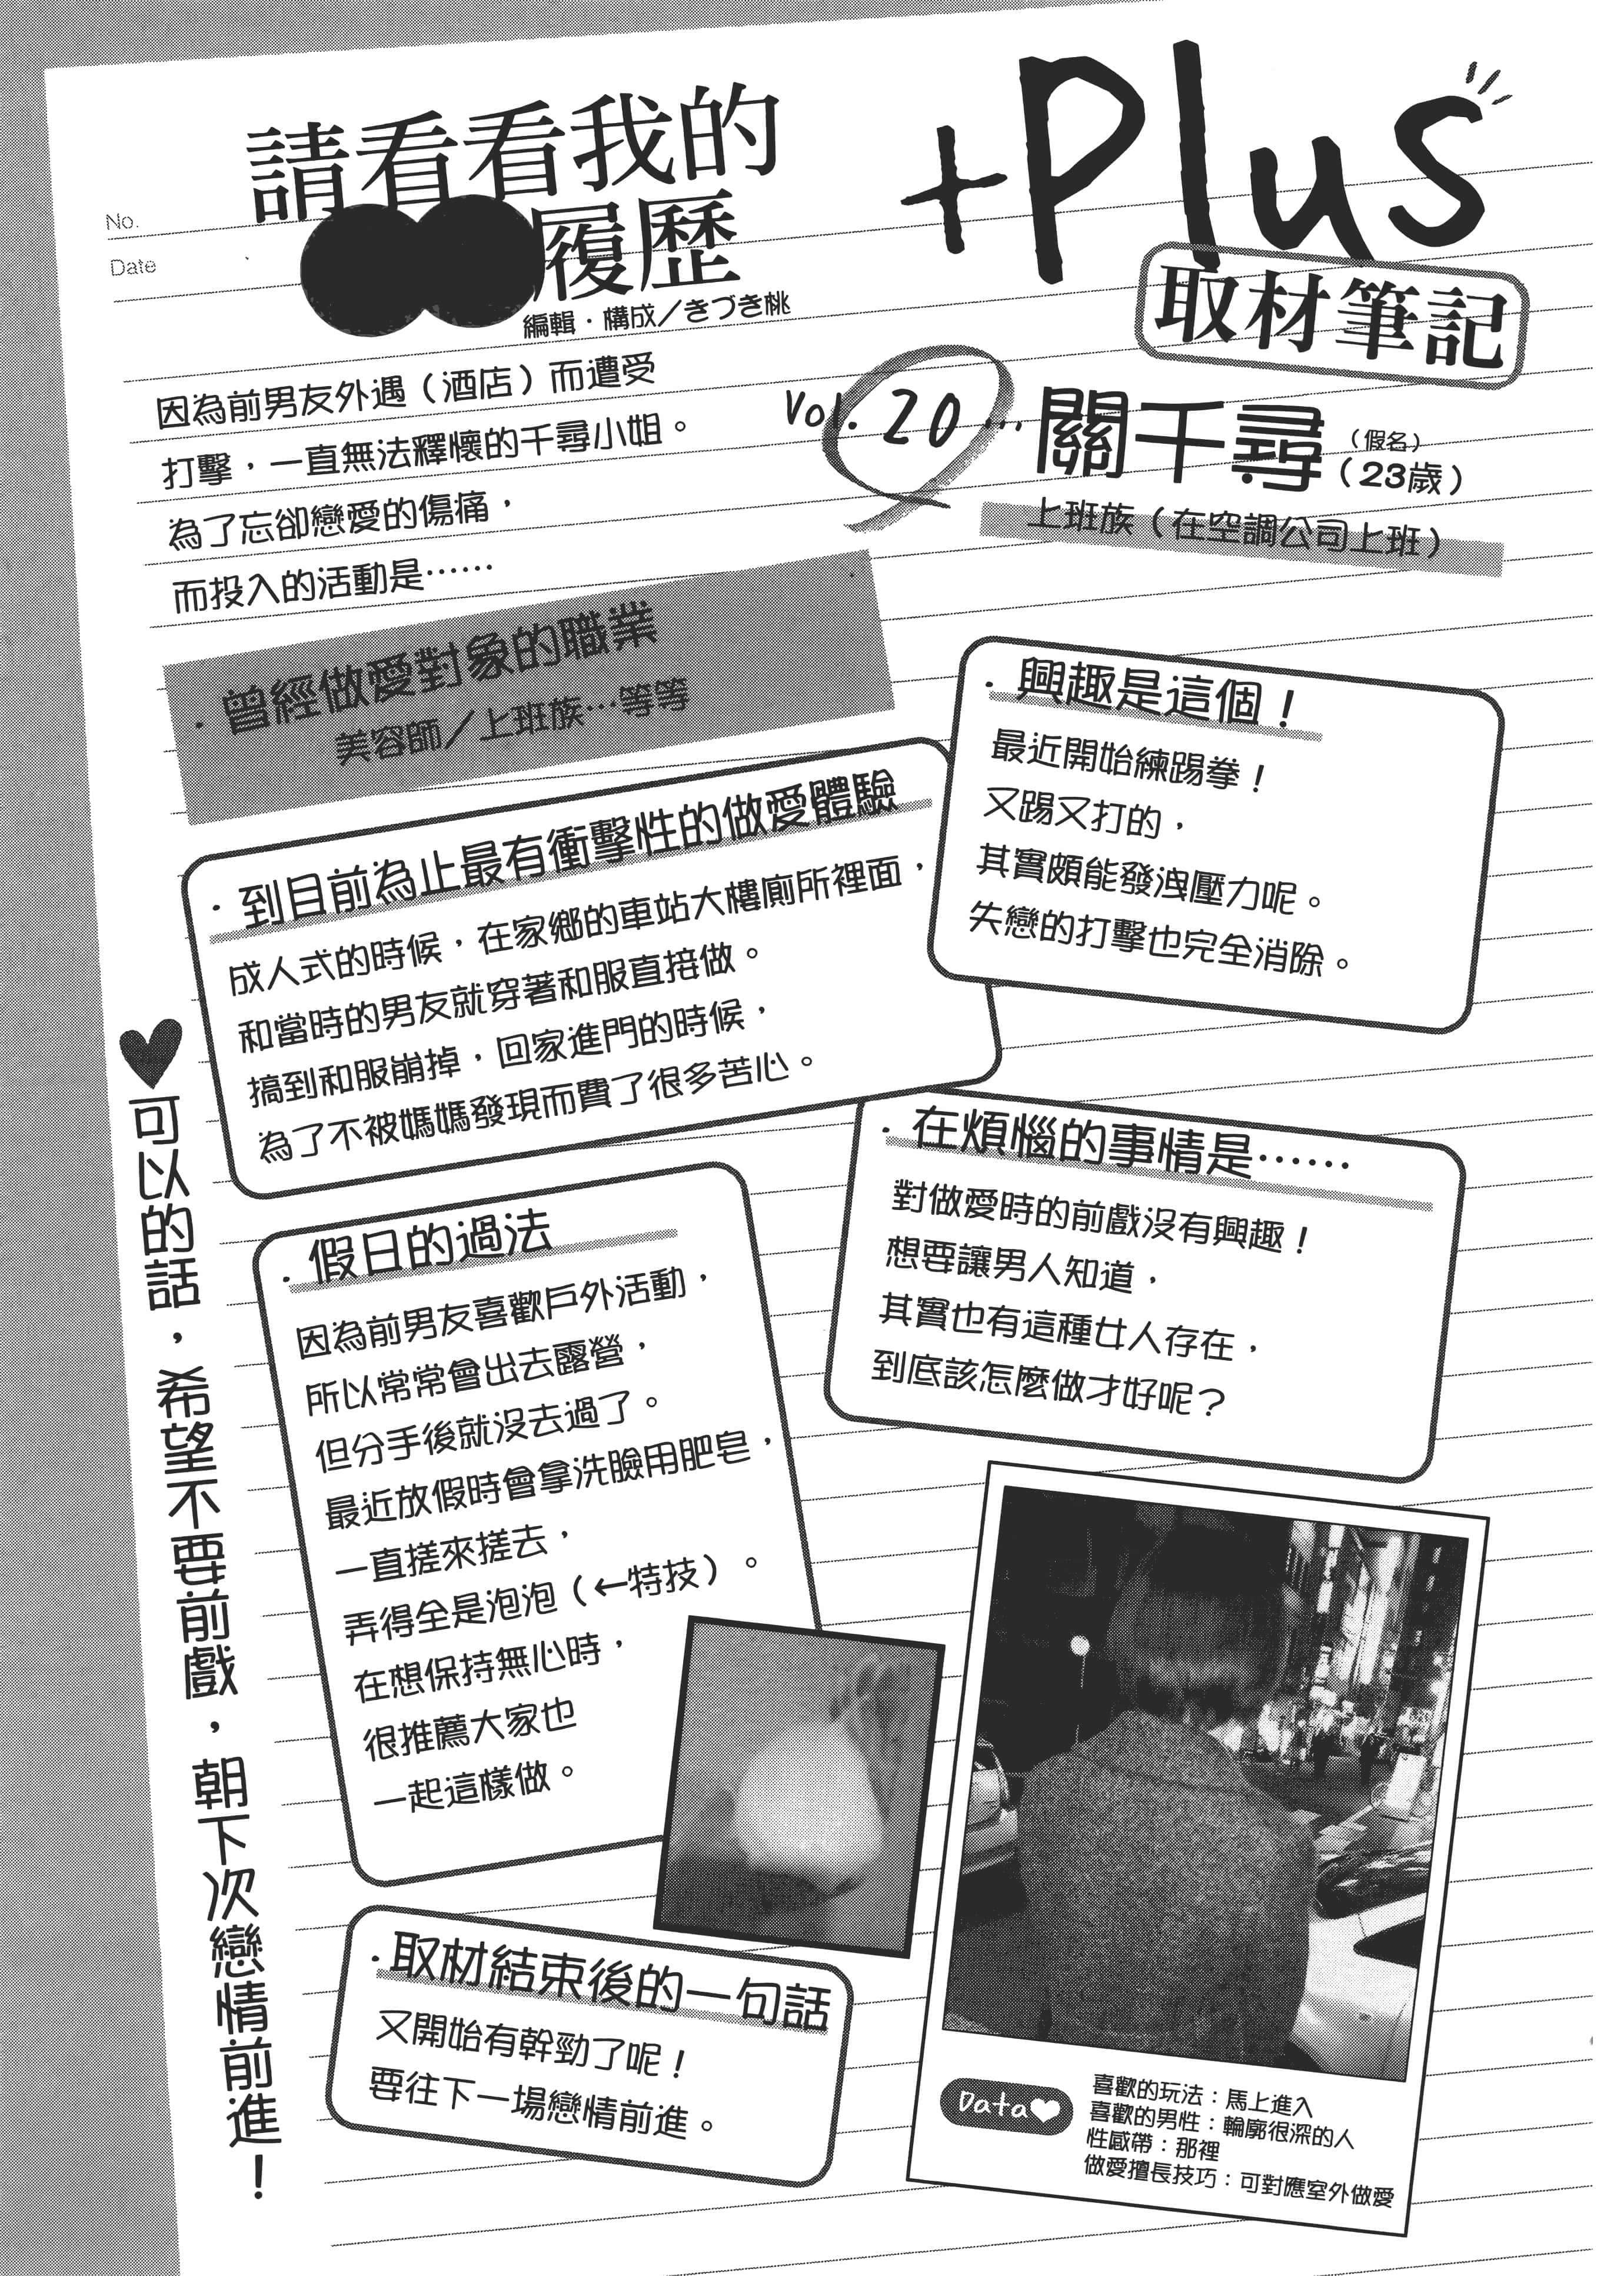 No.
Date
請看看我的
履歷
編輯・構成／きづき桃
+Plus
取材筆記
因為前男友外遇（酒店）而遭受
打擊，一直無法釋懷的千尋小姐。
為了忘卻戀愛的傷痛，
而投入的活動是……
Vol. 20…
關千尋（假名）（23歲）
上班族（在空調公司上班）
・曾經做愛對象的職業
美容師／上班族…等等
・興趣是這個！
最近開始練踢拳！
又踢又打的，
其實頗能發洩壓力呢。
失戀的打擊也完全消除。
・到目前為止最有衝擊性的做愛體驗
成人式的時候，在家鄉的車站大樓廁所裡面，
和當時的男友就穿著和服直接做。
搞到和服崩掉，回家進門的時候，
為了不被媽媽發現而費了很多苦心。
・在煩惱的事情是……
對做愛時的前戲沒有興趣！
想要讓男人知道，
其實也有這種女人存在，
到底該怎麼做才好呢？
・假日的過法
因為前男友喜歡戶外活動，
所以常常會出去露營，
但分手後就沒去過了。
最近放假時會拿洗臉用肥皂，
一直搓來搓去，
弄得全是泡泡（←特技）。
在想保持無心時，
很推薦大家也
一起這樣做。
・取材結束後的一句話
又開始有幹勁了呢！
要往下一場戀情前進。
Data
喜歡的玩法：馬上進入
喜歡的男性：輪廓很深的人
性感帶：那裡
做愛擅長技巧：可對應室外做愛
♥可以的話，希望不要前戲，朝下次戀情前進！